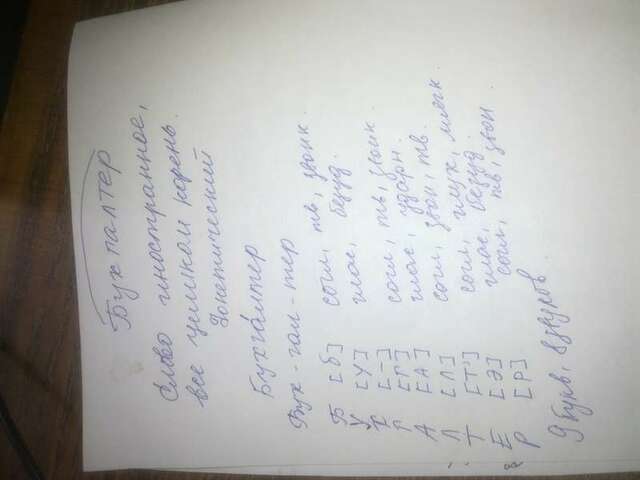 Бухгалтер
Слово иностранное,
все целиком корень.
Фонетический
Бухга́лтер
Бух-гал-тер
Б [Б] согл, тв, звонк.
У [У] глас, безуд.
Х [-]
Г [Г] согл, тв, звонк.
А [А] глас, ударн.
Л [Л] согл, звон, тв.
Т [Т'] согл, глух, мягк.
Е [Э] глас, безуд.
Р [Р] согл, тв, звон
9 букв, 8 звуков